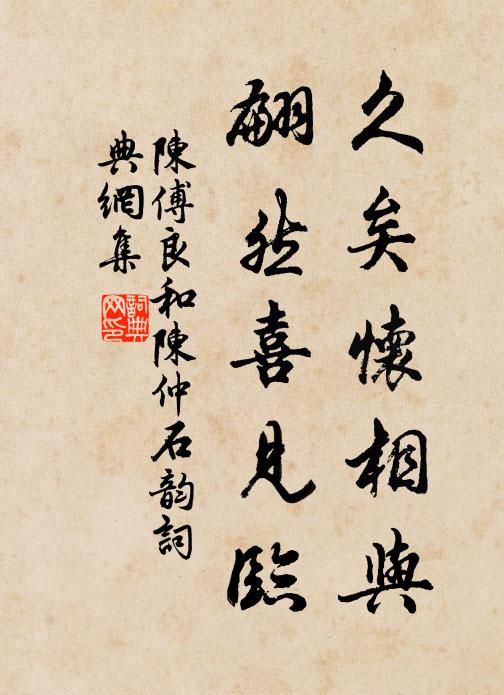 久矣懷相與
翩然喜見臨
陳傅良和陳仲石韵詞
典網集
詞典
网印